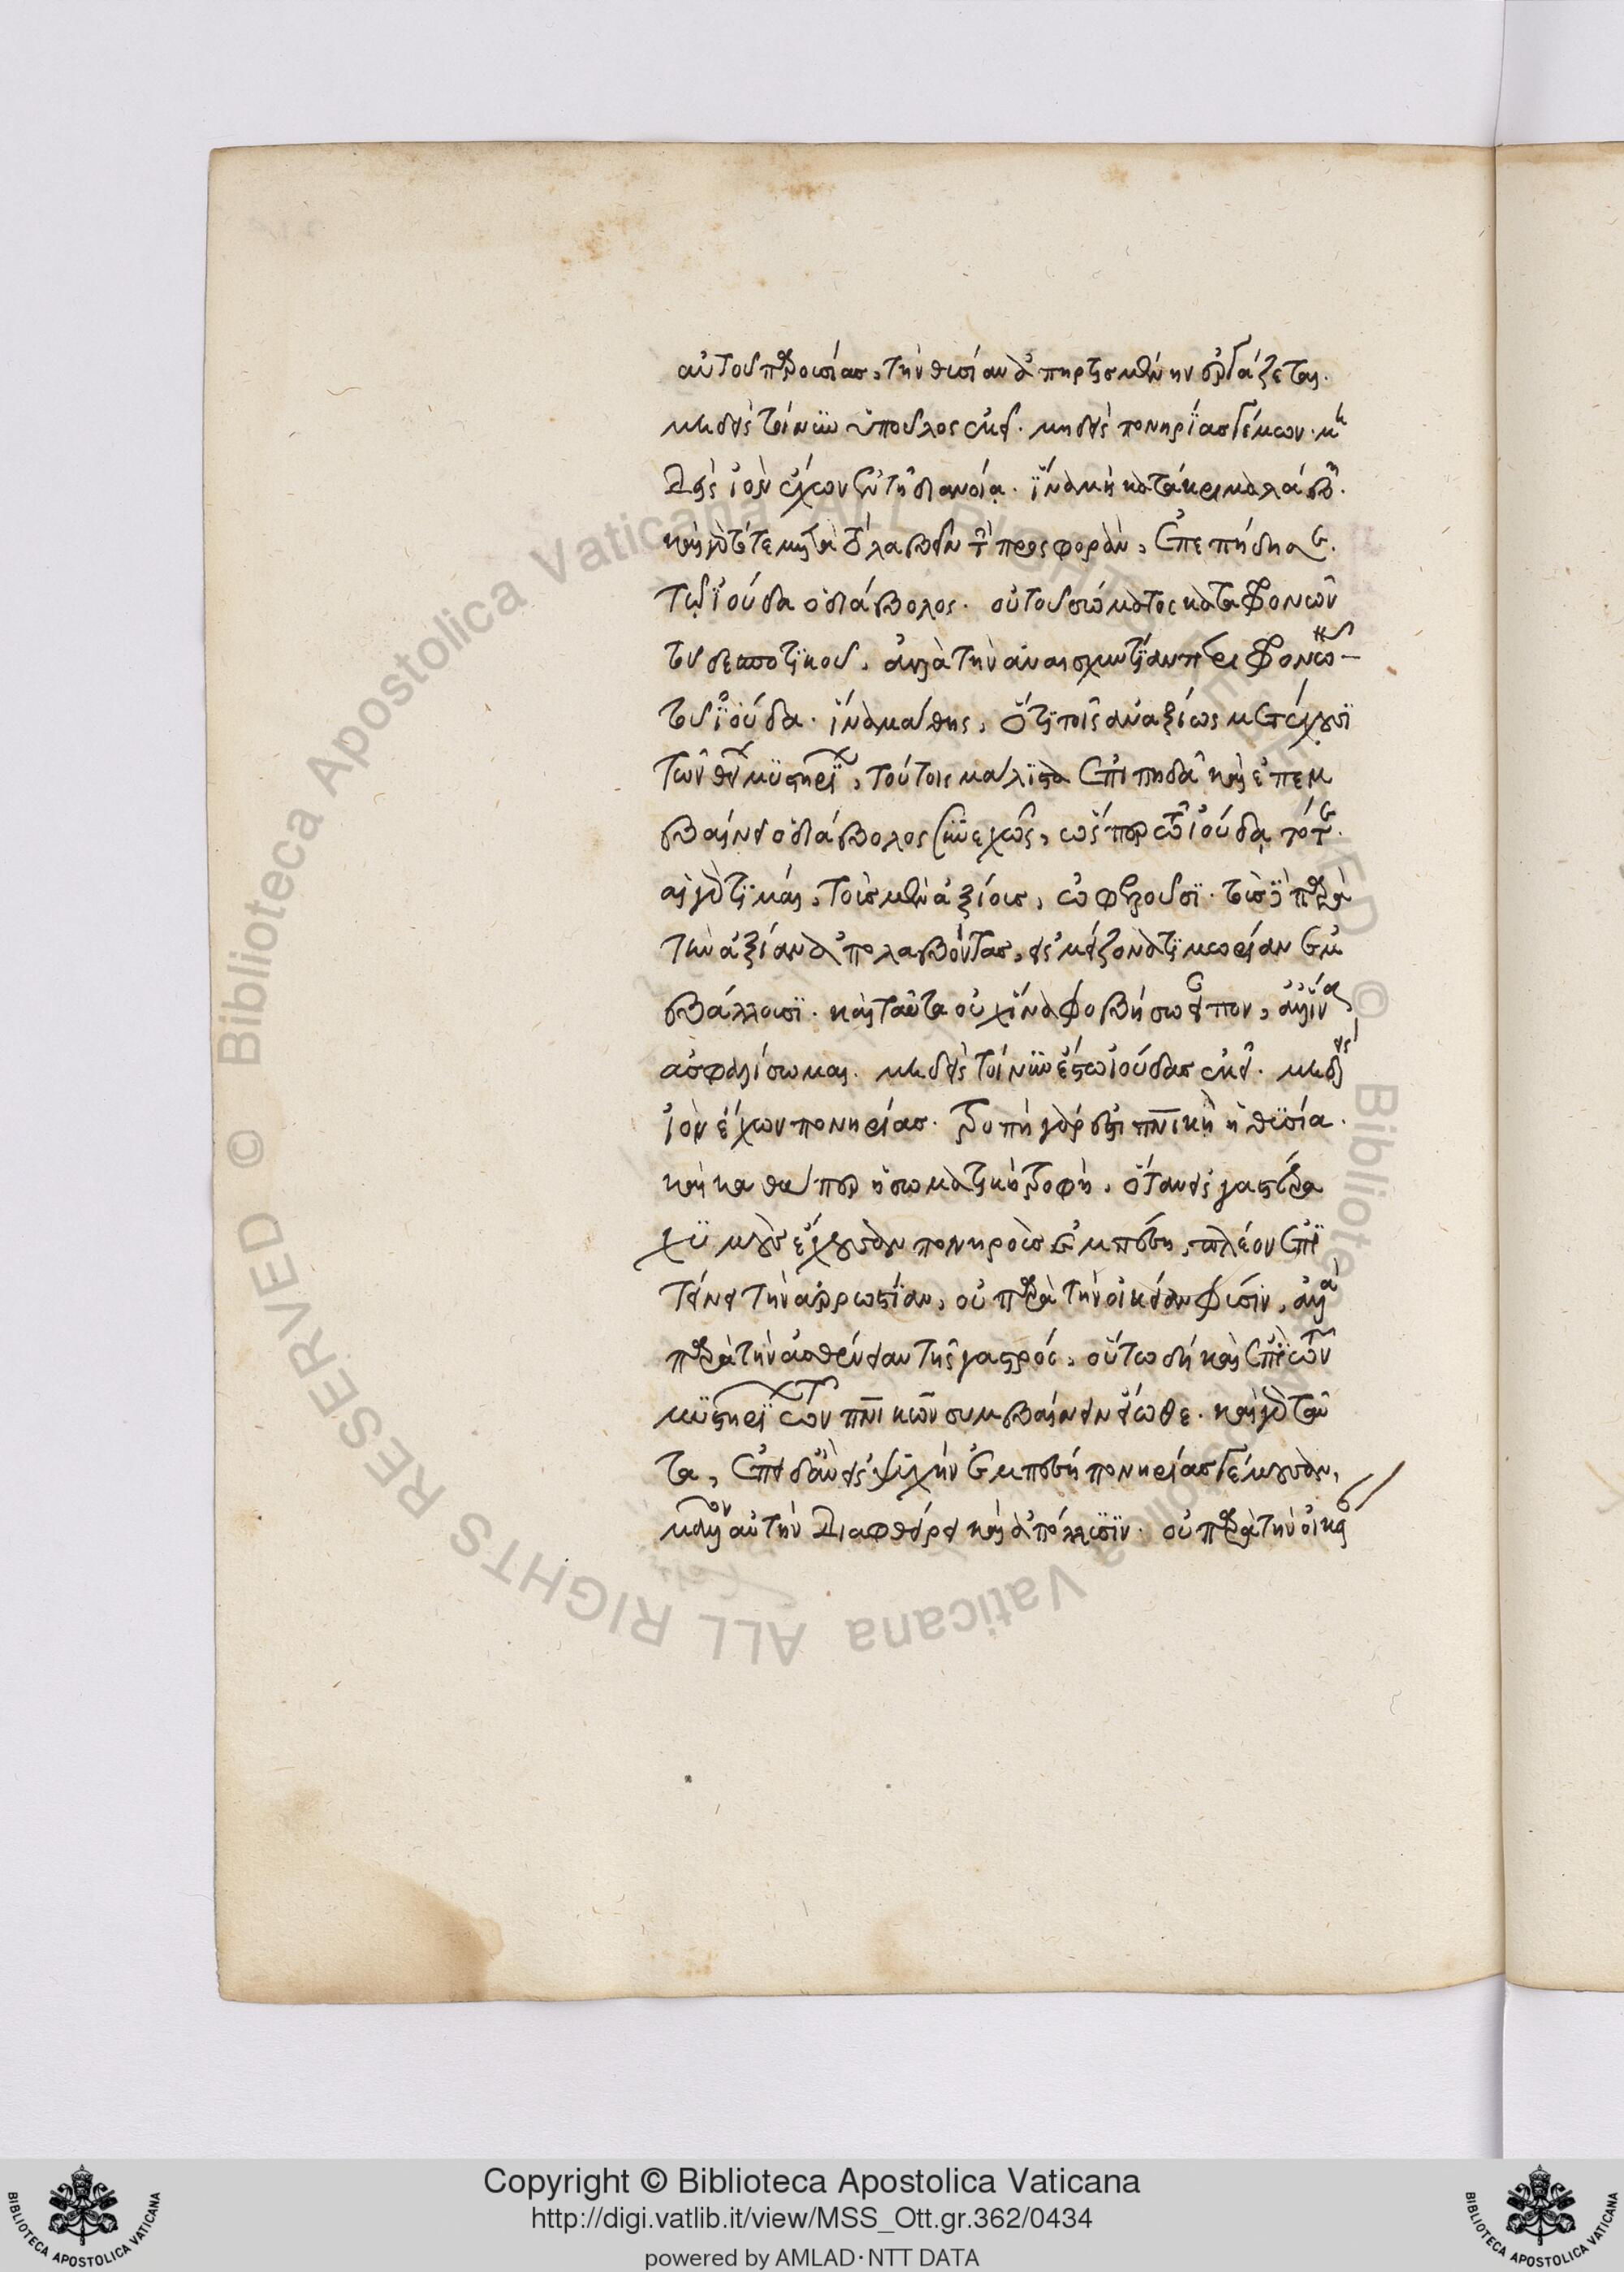 αὐτοῦ παρουσίας, τὴν θυσίαν ἀπηρτισμένην ἐργάζεται.
μηδεὶς τοίνυν ὕπουλος ἐκεῖ. μηδεὶς πονηρίας γέμων. μη
δεὶς ἰὸν ἔχων ἐν τῇ διανοίᾳ. ἵνα μὴ κατάκριμα λάβῃ.
καὶ γὰρ τότε μετὰ τὸ λαβεῖν τὴν προσφορὰν, ἐπεπήδησε
τῷ ἰούδα ὁ διάβολος. οὐ τοῦ σώματος καταφρονῶν
τοῦ δεσποτικοῦ, ἀλλὰ τὴν ἀναισχυντίαν
τοῦ ἰούδα. ἵνα μάθῃς, ὅτι τοῖς ἀναξίως μετέχουσι
τῶν θείων μυστηρίων, τούτοις μάλιστα ἐπιπηδᾷ καὶ ἐπεμ
βαίνει ὁ διάβολος συνεχῶς, ὥσπερ τῷ ἰούδα τότε.
αἱ γὰρ τιμαὶ, τοῖς μὲν ἀξίοις, ὠφελοῦσι. τοὺς δὲ παρὰ
τὴν ἀξίαν ἀπολαβόντας, εἰς μείζονα τιμωρίαν ἐμ
βάλλουσι. καὶ ταῦτα οὐχ ἵνα φοβήσω εἶπον, ἀλλ' ἵνα
ἀσφαλίσωμαι. μηδεὶς τοίνυν ἔστω ἰούδας ἐκεῖ. μηδεὶς
ἰὸν ἔχων πονηρίας. τροφὴ γάρ ἐστι πνικὴ ἡ θυσία.
καὶ καθάπερ ἡ σωματικὴ τροφὴ, ὅταν εἰς γαστέρα
χυμοὺς ἔχουσαν πονηροὺς ἐμπέσῃ, πλέον ἐπι
τείνει τὴν ἀρρωστίαν, οὐ παρὰ τὴν οἰκείαν φύσιν, ἀλλὰ
παρὰ τὴν ἀσθένειαν τῆς γαστρός, οὕτω δὴ καὶ ἐπὶ τῶν
μυστηρίων τῶν πνικῶν συμβαίνειν εἴωθε. καὶ γὰρ ταῦ
τα, ἐπειδὰν εἰς ψυχὴν ἐμπέσῃ πονηρίας γέμουσαν,
μᾶλλον αὐτὴν διαφθείρει καὶ ἀπόλλυσιν. οὐ παρὰ τὴν οἰκεί
Copyright © Biblioteca Apostolica Vaticana
http://digi.vatlib.it/view/MSS_Ott.gr.362/0434
powered by AMLAD·NTT DATA
© Biblioteca Apostolica Vaticana ALL RIGHTS RESERVED © Biblioteca Apostolica Vaticana ALL RIGHTS RESERVED
BIBLIOTECA APOSTOLICA VATICANA
BIBLIOTECA APOSTOLICA VATICANA